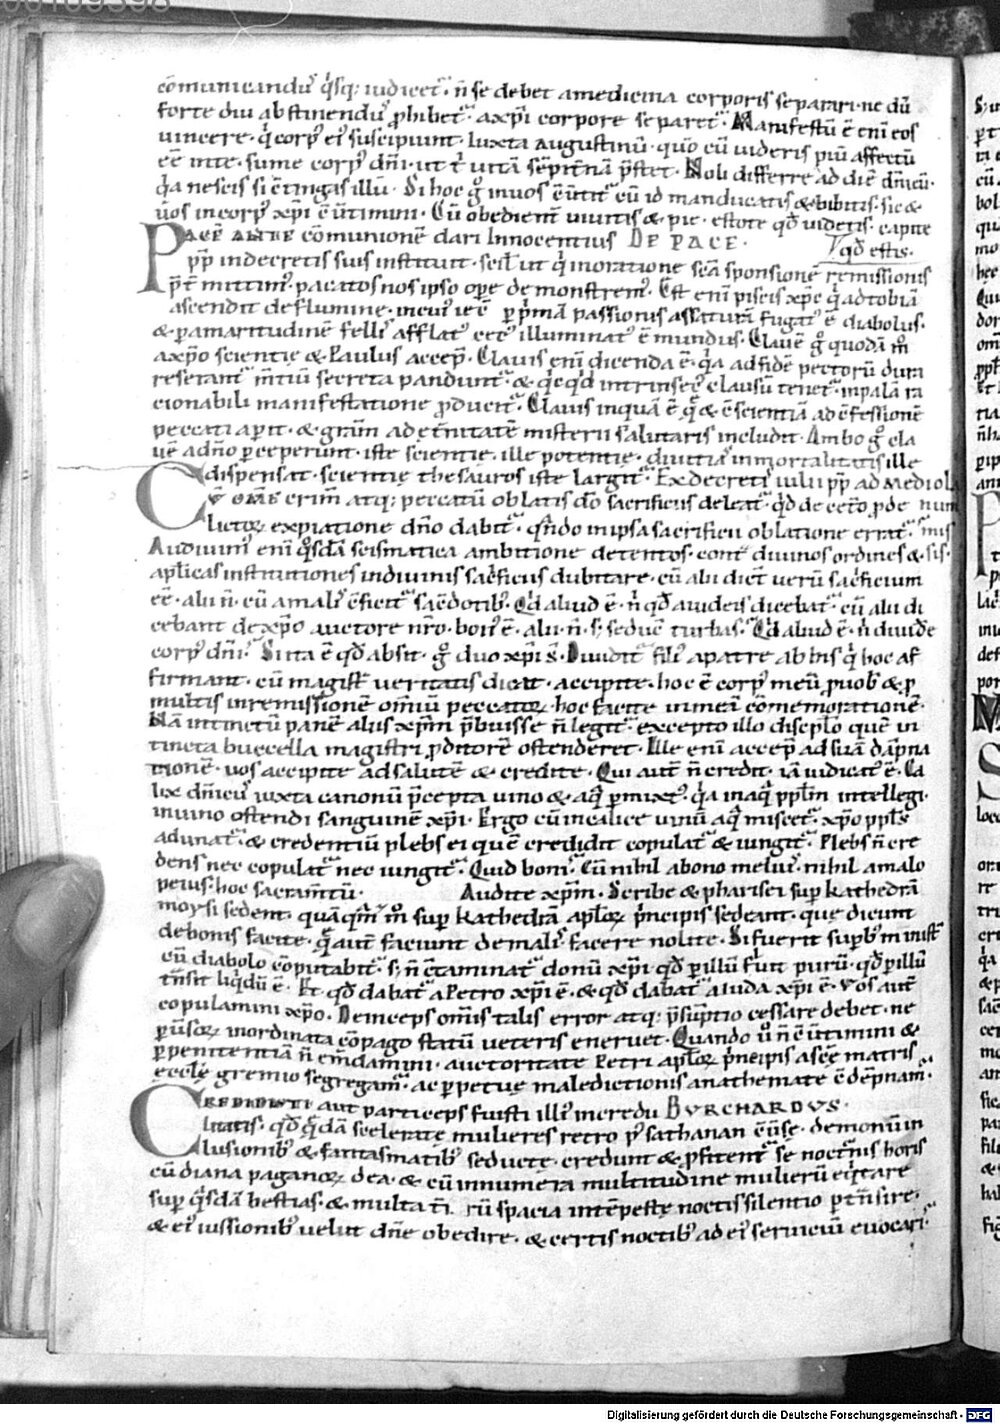 cōmunicandu᷒ q̓sq; iudicet᷑. n̄ se debet amedicina corporis separari. ne dū
forte diu abstinendu᷒ ꝓhibet᷑. axp̄i corpore separet᷑. Manifestū ē enī eos
uincere. q̓ corp᷒ ei᷒ suscipiunt. Iuxta augustinū. quō cū uideris piū affectū
eē inte. sume corp᷒ dn̄i. ut t̓ uitā sēpit̄nā p̄stet. Noli differre ad diē dn̄icū.
q̓a nescis si ɔtingas illū. Si hoc g̊ inuos ɔ̄utit᷑ cū id manducatis & bibitis. sic &
uos incorp᷒ xp̄i ɔ̄utimini. Cū obedient̄ uiuitis & pie. estote qd̄ uidetis. capite
PACĒ ANTE cōmunionē dari Innocentius DE PACE. qd̄ estis.
pp̄ indecretis suis instituit. scil ut q̓ inoratione scā sponsionē remissionis
p̄t mittim᷒. pacatos nos ipso oꝑe demonstrem᷒. Est enī piscis xp̄c q̓ adtobiā
ascendit de flumine. incui᷒ iecē ꝑ p̓mā passionis assaturā fugat᷒ ē diabolus.
& ꝑamaritudinē felli᷒ afflat᷒ cec᷒ illuminat᷒ ē mundus. Clauē g̊ quodā m̊
axp̄o scientię & Paulus accep̄. Clauis enī dicenda ē. q̓a adfidē pectorū dura
reserant᷑ m̄tiū secreta pandunt᷑. & q̓cq̓d intrinsec᷒ clausū tenet᷑. inpalā ra
cionabili manifestatione ꝓducit᷑. Clauis inquā ē q̄ & ɔscientiā ad ɔfessionē
peccati aꝑit. & gratiā ad et̄nitatē misterii salutaris includit. Ambo g̊ cla
uē adn̄o ꝑceperunt. iste scientię. ille potentię. diuitias inmortalitatis ille
dispensat. scientię thesauros iste largit᷑. Ex decreti᷒ iulii pp̄ ad Mediola
CV OME crim̄ atq; peccatū oblatis dō sacrificiis deleat᷑. q̓d de cet̄o ꝓ de num
lictoꝝ expiatione dn̄o dabit᷑. qn̄do inipsa sacrificii oblatione errat᷑. mis
Audiuim᷒ enī q̊sdā scismatica ambitione detentos. cont̄ diuinos ordines & sis.
aplicas institutiones indiuinis sac̓ficiis dubitare. cū alii dic̄t uerū sac̓ficium
eē. alii n̄. cū amali᷒ ɔficit᷑ sac̄dotib᷒. Q̓d aliud ē. n̓ qd̄ iudeis dicebat᷑. cū alii di
cebant dexp̄o auctore nr̄o. bon᷒ ē. alii n̄. s; seduc̄ turbas. Q̓d aliud ē. n̓ diuide
corp᷒ dn̄i. Si ita ē qd̄ absit. g̊ duo xp̄i s̄. Diuidit᷑ fili᷒ apatre ab his q̓ hoc af
firmant. cū magist̄ ueritatis dicat. accipite. hoc ē corp᷒ meū ꝓuob᷒ & ꝓ
multis inremissionē omiū peccatoꝝ. hoc facite inmeā cōmemorationē.
Nā intinctū panē aliis xp̄m p̄buisse n̄ legit᷑. excepto illo discipl̄o quē in
tincta buccella magistri ꝓditorē ostenderet. Ille enī accep̄ ad suā dāpna
tionē. uos accipite adsalutē & credite. Qui aut̄ n̄ credit. iā iudicat᷒ ē. Ca
lix dn̄ic᷒ iuxta canonū p̄cepta uino & aq̓ ꝑmixt᷒. q̓a inaq̓ pplm̄ intellegi.
inuino ostendi sanguinē xp̄i. Ergo cū incalice uinū aq̓ miscet᷑. xp̄o ppls̄
adunat᷑. & credentiū plebs ei quē credidit copulat᷑ & iungit᷑. Plebs n̄ cre
dens nec copulat᷑ nec iungit᷑. Quid boni. Cū nihil abono meliu᷒. nihil amalo
peius. hoc sacram̄tū. Audite xp̄m. Scribe & pharisei sup̄ kathedrā
moysi sedent. quāqm̄ m̊ sup̄ kathedrā aploꝝ p̓ncipis sedeant. que dicunt
debonis facite. q̄ aut̄ faciunt demali᷒ facere nolite. Si fuerit supb᷒ minist̄
cū diabolo ɔputabit᷑. s; n̄ ɔtaminat᷑ donū xp̄i qd̄ ꝑillū fuit purū. qd̄ ꝑillū
tn̄sit liq̓dū ē. Et qd̄ dabat᷑ aPetro xp̄i ē. & qd̄ dabat᷑ aIuda xp̄i ē. Vos aut̄
copulamini xp̄o. Deinceps om̄is talis error atq; p̄suptio cessare debet. ne
ꝑuersoꝝ inordinata ɔpago statū ueteris eneruet. Quando ů n̄ ɔ̄utimini &
ꝑpenitentiā n̄ em̄damini. auctoritate Petri aploꝝ p̓ncipis ascē matris
ęcclę gremio segregam᷒. ac ꝑpetuę maledictionis anathemate ɔdēpnam᷒.
CREDIDISTI aut particeps fuisti illi᷒ incredu BVRCHARDVS.
litatis. qd̄ q̄dā scelerate mulieres retro p᷒ sathanan ɔuersę. demonū in
lusionib᷒ & fantasmatib᷒ seductę. credunt & ꝓfitent᷑ se noct̄nis horis
cū diana paganoꝝ dea. & cū innumera multitudine mulierū eq̓tare
sup̄ q̊sdā bestias. & multa t̄rarū spacia intēpestę noctis silentio pt̄nsire.
& ei᷒ iussionib᷒ uelut dn̄e obedire. & certis noctib᷒ ad ei᷒ seruiciū euocari.
Digitalisierung gefördert durch die Deutsche Forschungsgemeinschaft - DFG